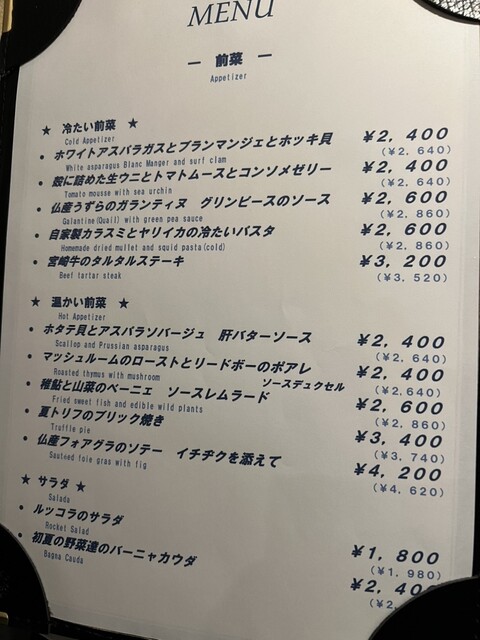 MENU
― 前菜 ―
Appetizer
★ 冷たい前菜 ★
Cold Appetizer
• ホワイトアスパラガスとブランマンジェとホッキ貝 ¥2,400
White asparagus Blanc Manger and surf clam (¥2,640)
• 殻に詰めた生ウニとトマトムースとコンソメゼリー ¥2,400
Tomato mousse with sea urchin (¥2,640)
• 仏産うずらのガランティヌ グリンピースのソース ¥2,600
Galantine(Quail) with green pea sauce (¥2,860)
• 自家製カラスミとヤリイカの冷たいパスタ ¥2,600
Homemade dried mullet and squid pasta(cold) (¥2,860)
• 宮崎牛のタルタルステーキ ¥3,200
Beef tartar steak (¥3,520)
★ 温かい前菜 ★
Hot Appetizer
• ホタテ貝とアスパラソバージュ 肝バターソース ¥2,400
Scallop and Prussian asparagus (¥2,640)
• マッシュルームのローストとリードボーのポアレ ¥2,400
Roasted thymus with mushroom ソースデュクセル (¥2,640)
• 稚鮎と山菜のベーニェ ソースレムラード ¥2,600
Fried sweet fish and edible wild plants (¥2,860)
• 夏トリフのブリック焼き ¥3,400
Truffle pie (¥3,740)
• 仏産フォアグラのソテー イチヂクを添えて ¥4,200
Sauteed foie gras with fig (¥4,620)
★ サラダ ★
Salada
• ルッコラのサラダ ¥1,800
Rocket Salad (¥1,980)
• 初夏の野菜達のバーニャカウダ ¥2,400
Bagna Cauda (¥2,